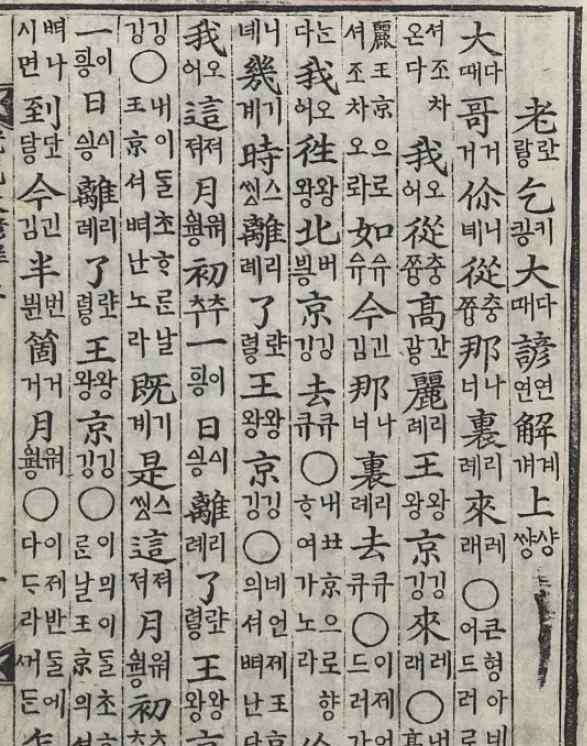 老 乞킹키大따다諺언연解걔계上썅샹
大따다哥거거你녜니從쭝충那너나裏례리來래레○큰형아네어드러로
셔조차온다我어오從쭝충高麗례리王왕왕京깅깅來래레○내高
麗王京으로셔조차오롸如유유今김긴那너나裏례리去큐큐○이제어드러가
는다我어오往왕왕北븡버京깅깅去큐큐○내北京으로향ᄒᆞ여가노라你
녜니幾계기時씽스離례리了王왕왕京깅깅○네언제王의셔ᄠᅥ난다
我어오這져져月웡워初추추一힝이日싱시離례리了王왕왕京
깅깅○내이ᄃᆞᆯ초ᄒᆞᄅᆞᆫ날王京셔ᄠᅥ난노라既계기是씽스這져져月웡워初추추
一힝이日싱시離례리了王왕왕京깅깅○이믜이ᄃᆞᆯ초ᄒᆞᄅᆞᆫ날王京의셔
ᄠᅥ나시면到今김긴半뷘번箇거거月웡워○이제반ᄃᆞᆯ에다ᄃᆞ라새든